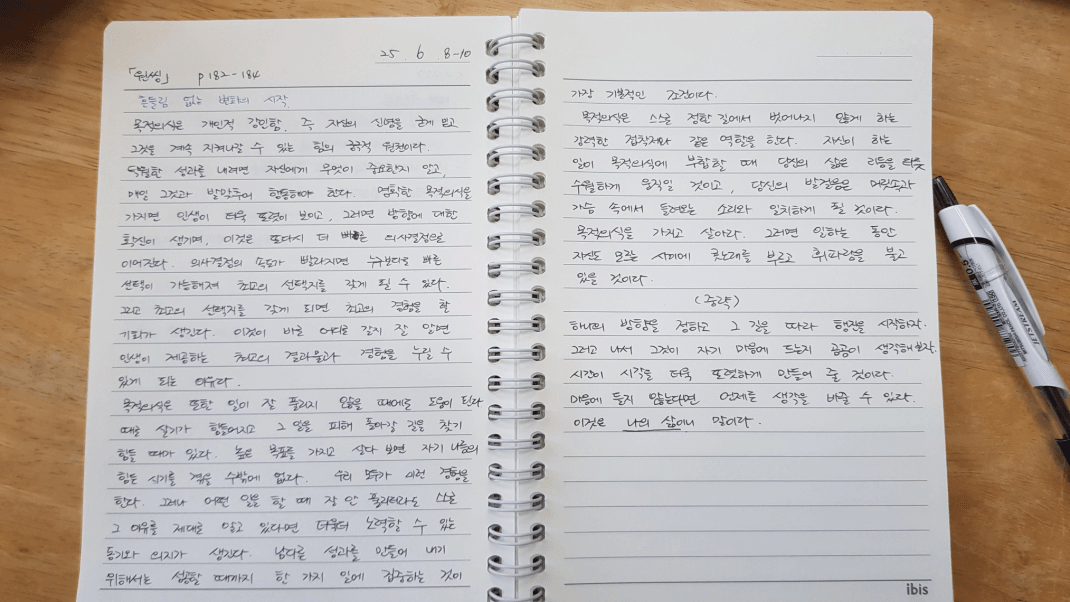 25. 6 8-10
「원씽」 p182-184
흔들림 없는 변화의 시작
목적의식은 개인적 강인함, 즉 자신의 신념을 굳게 믿고
그것을 계속 지켜나갈 수 있는 힘의 궁극적 원천이다.
탁월한 성과를 내려면 자신에게 무엇이 중요한지 알고,
매일 그것과 발맞추어 행동해야 한다. 명확한 목적의식을
가지면 인생이 더욱 또렷이 보이고, 그러면 방향에 대한
확신이 생기며, 이것은 또다시 더 빠른 의사결정으로
이어진다. 의사결정의 속도가 빨라지면 누구보다도 빠른
선택이 가능해져 최고의 선택지를 갖게 될 수 있다.
그리고 최고의 선택지를 갖게 되면 최고의 경험을 할
기회가 생긴다. 이것이 바로 어디로 갈지 잘 알면
인생이 제공하는 최고의 결과물과 경험을 누릴 수
있게 되는 이유다.
목적의식은 또한 일이 잘 풀리지 않을 때에도 도움이 된다
때로 살기가 힘들어지고 그 일을 피해 돌아갈 길을 찾기
힘들 때가 있다. 높은 목표를 가지고 살다 보면 자기 나름의
힘든 시기를 겪을 수밖에 없다. 우리 모두가 이런 경험을
한다. 그러나 어떤 일을 할 때 잘 안 풀리더라도 스스로
그 이유를 제대로 알고 있다면 더욱더 노력할 수 있는
동기와 의지가 생긴다. 남다른 성과를 만들어 내기
위해서는 성공할 때까지 한 가지 일에 집중하는 것이
가장 기본적인 조건이다.
목적의식은 스스로 정한 길에서 벗어나지 않게 하는
강력한 접착제와 같은 역할을 한다. 자신이 하는
일이 목적의식에 부합할 때 당신의 삶은 리듬을 타듯
수월하게 움직일 것이고, 당신의 발걸음은 머릿속과
가슴 속에서 들려오는 소리와 일치하게 될 것이다.
목적의식을 가지고 살아라. 그러면 일하는 동안
자신도 모르는 사이에 콧노래를 부르고 휘파람을 불고
있을 것이다.
(중략)
하나의 방향을 정하고 그 길을 따라 행진을 시작하자.
그러고 나서 그것이 자기 마음에 드는지 곰곰이 생각해보자.
시간이 시각을 더욱 또렷하게 만들어 줄 것이다.
마음에 들지 않는다면 언제든 생각을 바꿀 수 있다.
이것은 나의 삶이니 말이다.
ibis
JETSTREAM